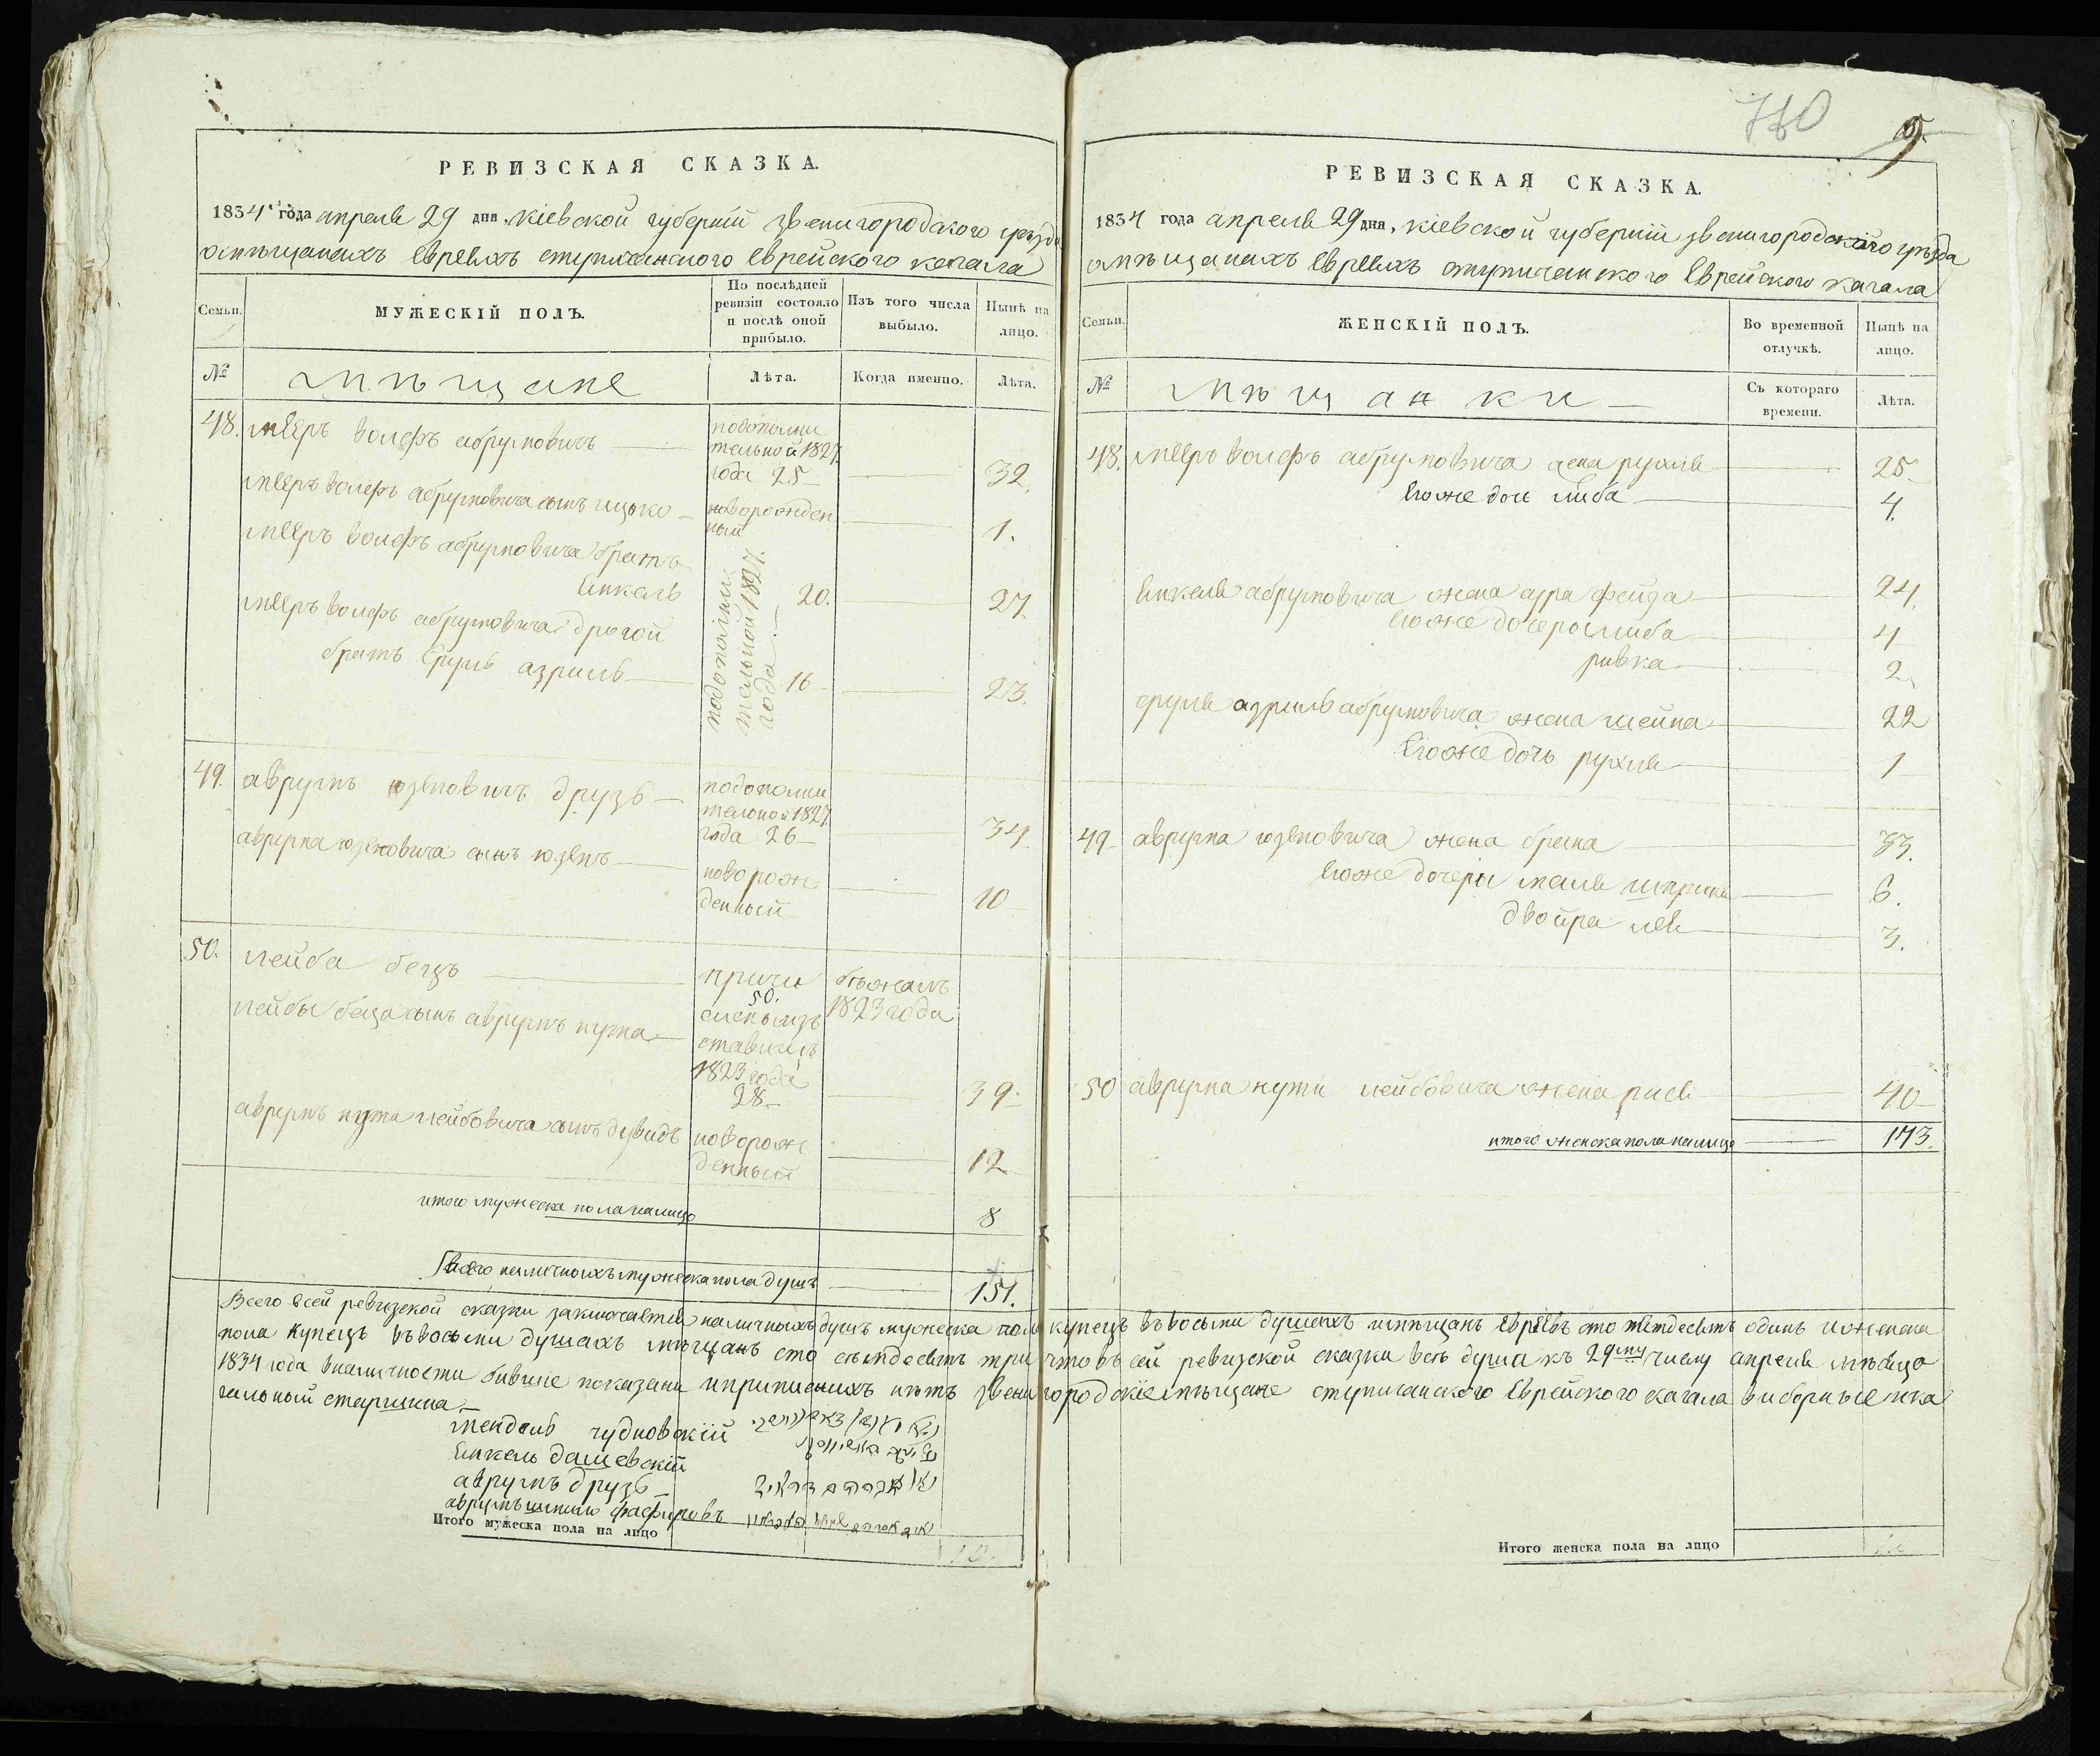 РЕВИЗСКАЯ СКАЗКА.
1834 года апреля 29 дня, Кіевской губерніи Звенигородского уѣзда
омѣщанахъ Евреяхъ Ступичанского Еврейского кагала
Семьи.
МУЖЕСКІЙ ПОЛЪ.
По послѣдней ревизіи состояло и послѣ оной прибыло.
Изъ того числа выбыло.
Нынѣ на лицо.
№
мѣщане
Лѣта.
Когда именно.
Лѣта.
48. мееръ волфъ абрумовичъ
подополни
тельной 1827
года 25
32.
мееръ волфъ абрумовича сынъ ицько
новорожден
ный
1.
мееръ волфъ абрумовича братъ
Янкель
подополни
тельной 1827.
года
20.
27.
мееръ волфъ абрумовича другой
братъ Сруль азриль
16
23.
49. аврумъ юзеповичъ друзь
подополни
тельной 1827
года 26
34
аврума юзеповича сынъ юзепъ
новорож
денный
10
50. лейба бецъ
причи
50.
бѣжалъ
1823 года
лейбы беца сынъ аврумъ нута
ставищъ
1823 года
28
39
аврумъ нута лейбовича сынъ дувидъ
новорож
денный
12
итого мужеска пола налицо
8
Всего наличныхъ мужеска пола душъ
151.
РЕВИЗСКАЯ СКАЗКА.
770
9
1834 года апреля 29 дня, Кіевской губерніи Звенигородского уѣзда
омѣщанахъ Евреяхъ Ступичанского Еврейского кагала
Семьи.
ЖЕНСКІЙ ПОЛЪ.
Во временной отлучкѣ.
Нынѣ на лицо.
№
мѣщанки
Съ котораго времени.
Лѣта.
48. мееръ волфъ абрумовича жена рухля
25
Егоже дочь либа
4.
Янкеля абрумовича жена сура фейга
24.
Егоже дочеры либа
4
ривка
2.
сруля азриля абрумовича жена шейна
22
Егоже дочь рухля
1
49 аврума юзеповича жена брана
33.
Егоже дочеры маля
6.
двойра лея
3.
50 аврума нути лейбовича жена рися
40
итого женска пола налицо
173.
Всего всей ревизской сказки заключается наличныхъ душъ мужеска пола купецъ въвосьми душахъ мѣщанъ Евреевъ сто пятдесятъ одинъ иженска
пола купецъ въвосьми душахъ мѣщанъ сто семдесятъ три что въ сей ревизской сказки всѣ душа къ 29му числу апреля мѣсяца
1834 года вналичности бывше показани инриписнихъ нѣтъ Звенигородскіе мѣщане Ступичанского Еврейского кагала виборные ика
гальный старшина
Мендель чудновскій
Янкель Дашевскій
аврумъ Друзь
Итого мужеска пола на лицо
Итого женска пола на лицо